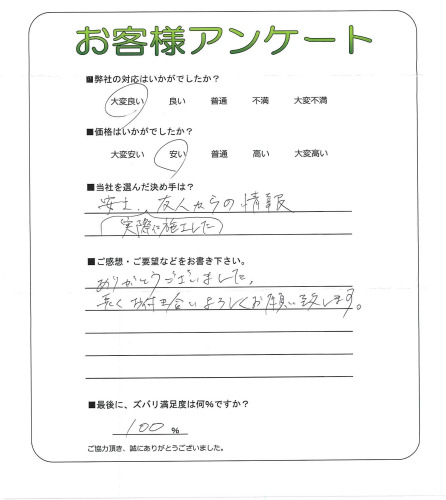 お客様アンケート
■弊社の対応はいかがでしたか？
大変良い 良い 普通 不満 大変不満
■価格はいかがでしたか？
大変安い 安い 普通 高い 大変高い
■当社を選んだ決め手は？
友人からの情報
(実際に施工した)
■ご感想・ご要望などをお書き下さい。
ありがとうございました。
長くお付き合いよろしくお願い致します。
■最後に、ズバリ満足度は何%ですか？
100 %
ご協力頂き、誠にありがとうございました。